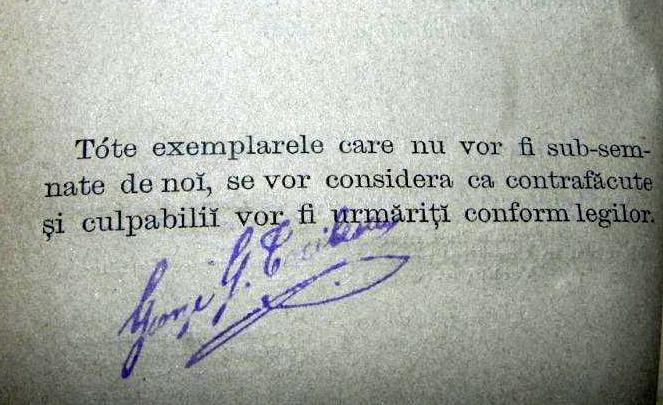 Tóte exemplarele care nu vor fi sub-sem-
nate de noĭ, se vor considera ca contrafăcute
şi culpabiliĭ vor fi urmăriţĭ conform legilor.
George G.